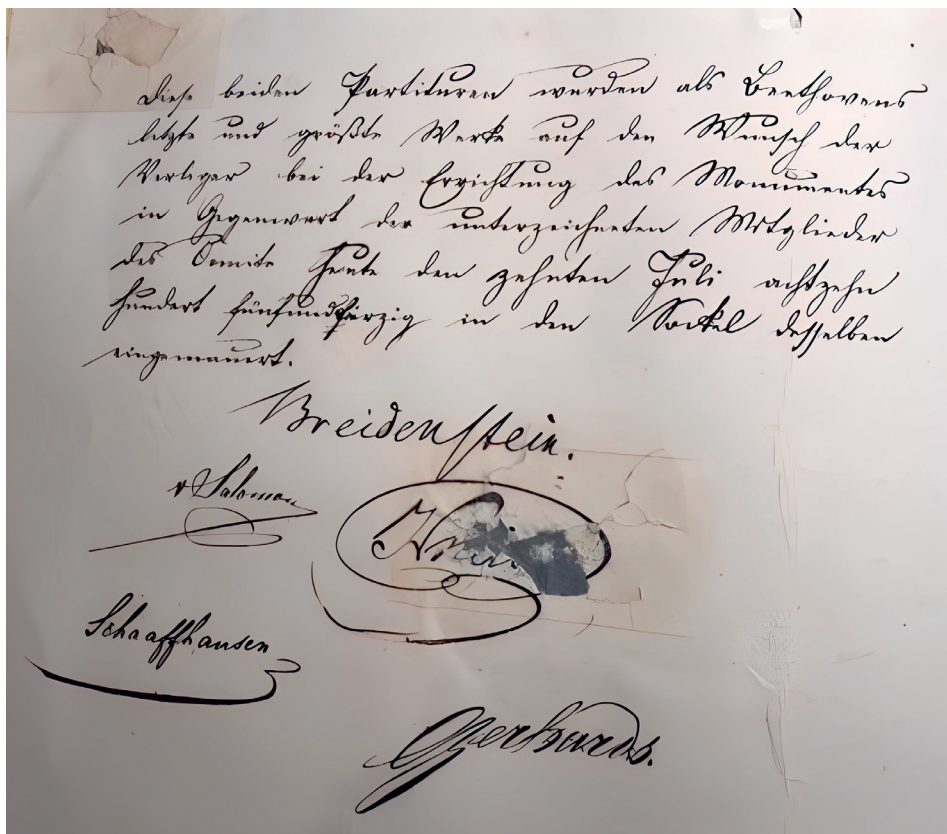 Diese beiden Partituren wurden als Beethovens
letzte und größte Werke auf den Wunsch der
Verleger bei der Errichtung des Monumentes
in Gegenwart der unterzeichneten Mitglieder
des Comite heute den zehnten Juli achtzehn
hundert fünfundvierzig in den Sockel desselben
eingemauert.
Breidenstein.
v Salomon
Schaaffhausen
Gerhards.